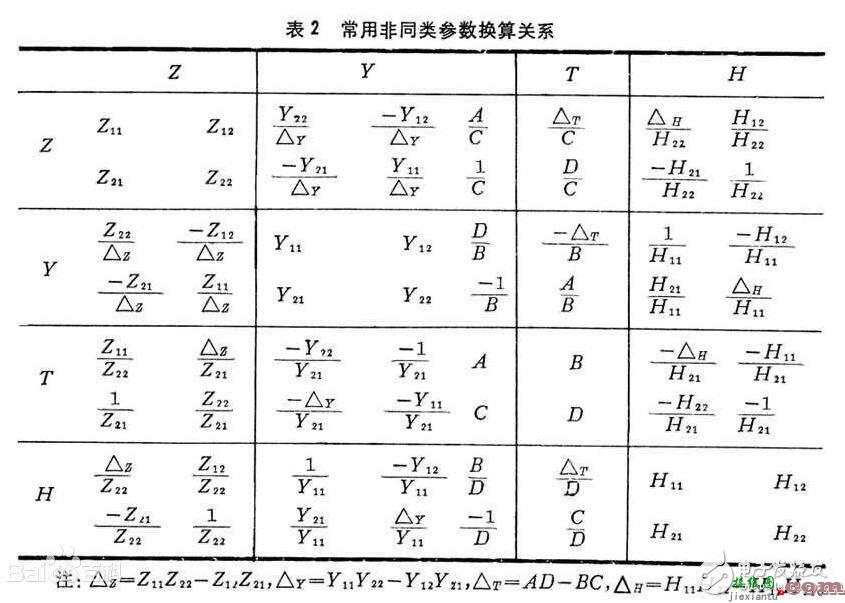 表 2 常用非同类参数换算关系
Z Y T H
Z Z₁₁ Z₁₂ Y₂₂/△Y -Y₁₂/△Y A/C △T/C △H/H₂₂ H₁₂/H₂₂
Z₂₁ Z₂₂ -Y₂₁/△Y Y₁₁/△Y 1/C D/C -H₂₁/H₂₂ 1/H₂₂
Y Z₂₂/△Z -Z₁₂/△Z Y₁₁ Y₁₂ D/B -△T/B 1/H₁₁ -H₁₂/H₁₁
-Z₂₁/△Z Z₁₁/△Z Y₂₁ Y₂₂ -1/B A/B H₂₁/H₁₁ △H/H₁₁
T Z₁₁/Z₂₂ △Z/Z₂₁ -Y₂₂/Y₂₁ -1/Y₂₁ A B -△H/H₂₁ -H₁₁/H₂₁
1/Z₂₁ Z₂₂/Z₂₁ -△Y/Y₂₁ -Y₁₁/Y₂₁ C D -H₂₂/H₂₁ -1/H₂₁
H △Z/Z₂₂ Z₁₂/Z₂₂ 1/Y₁₁ -Y₁₂/Y₁₁ B/D △T/D H₁₁ H₁₂
-Z₂₁/Z₂₂ 1/Z₂₂ Y₂₁/Y₁₁ △Y/Y₁₁ -1/D C/D H₂₁ H₂₂
注: △Z=Z₁₁Z₂₂-Z₁₂Z₂₁,△Y=Y₁₁Y₂₂-Y₁₂Y₂₁,△T=AD-BC,△H=H₁₁
Bai百科
接线图
jiexiantu
.com